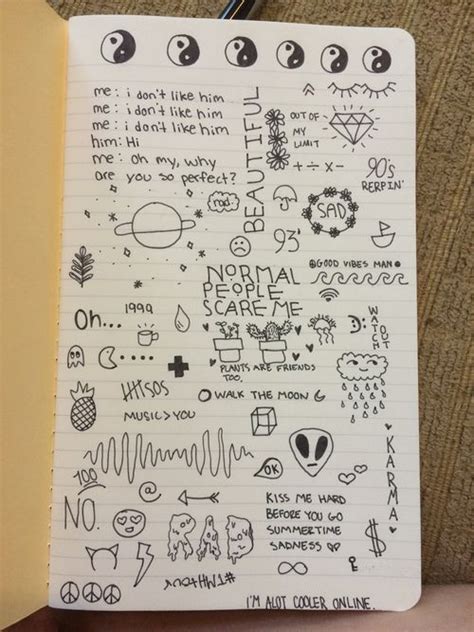 me: i don't like him
me: i don't like him
me: i don't like him
him: Hi
me: oh my, why
are you so perfect?
BEAUTIFUL
OUT OF
MY
LIMIT
+ ÷ × -
90's
RERPIN'
rad
SAD
93'
GOOD VIBES MAN
NORMAL
PEOPLE
SCARE ME
1999
Oh...
WATCH
OUT
PLANTS ARE FRIENDS
TOO.
SOS
WALK THE MOON
MUSIC>YOU
KARMA
100
@
OK
NO.
KISS ME HARD
BEFORE YOU GO
SUMMERTIME
SADNESS
$
∞
I'M ALOT COOLER ONLINE.